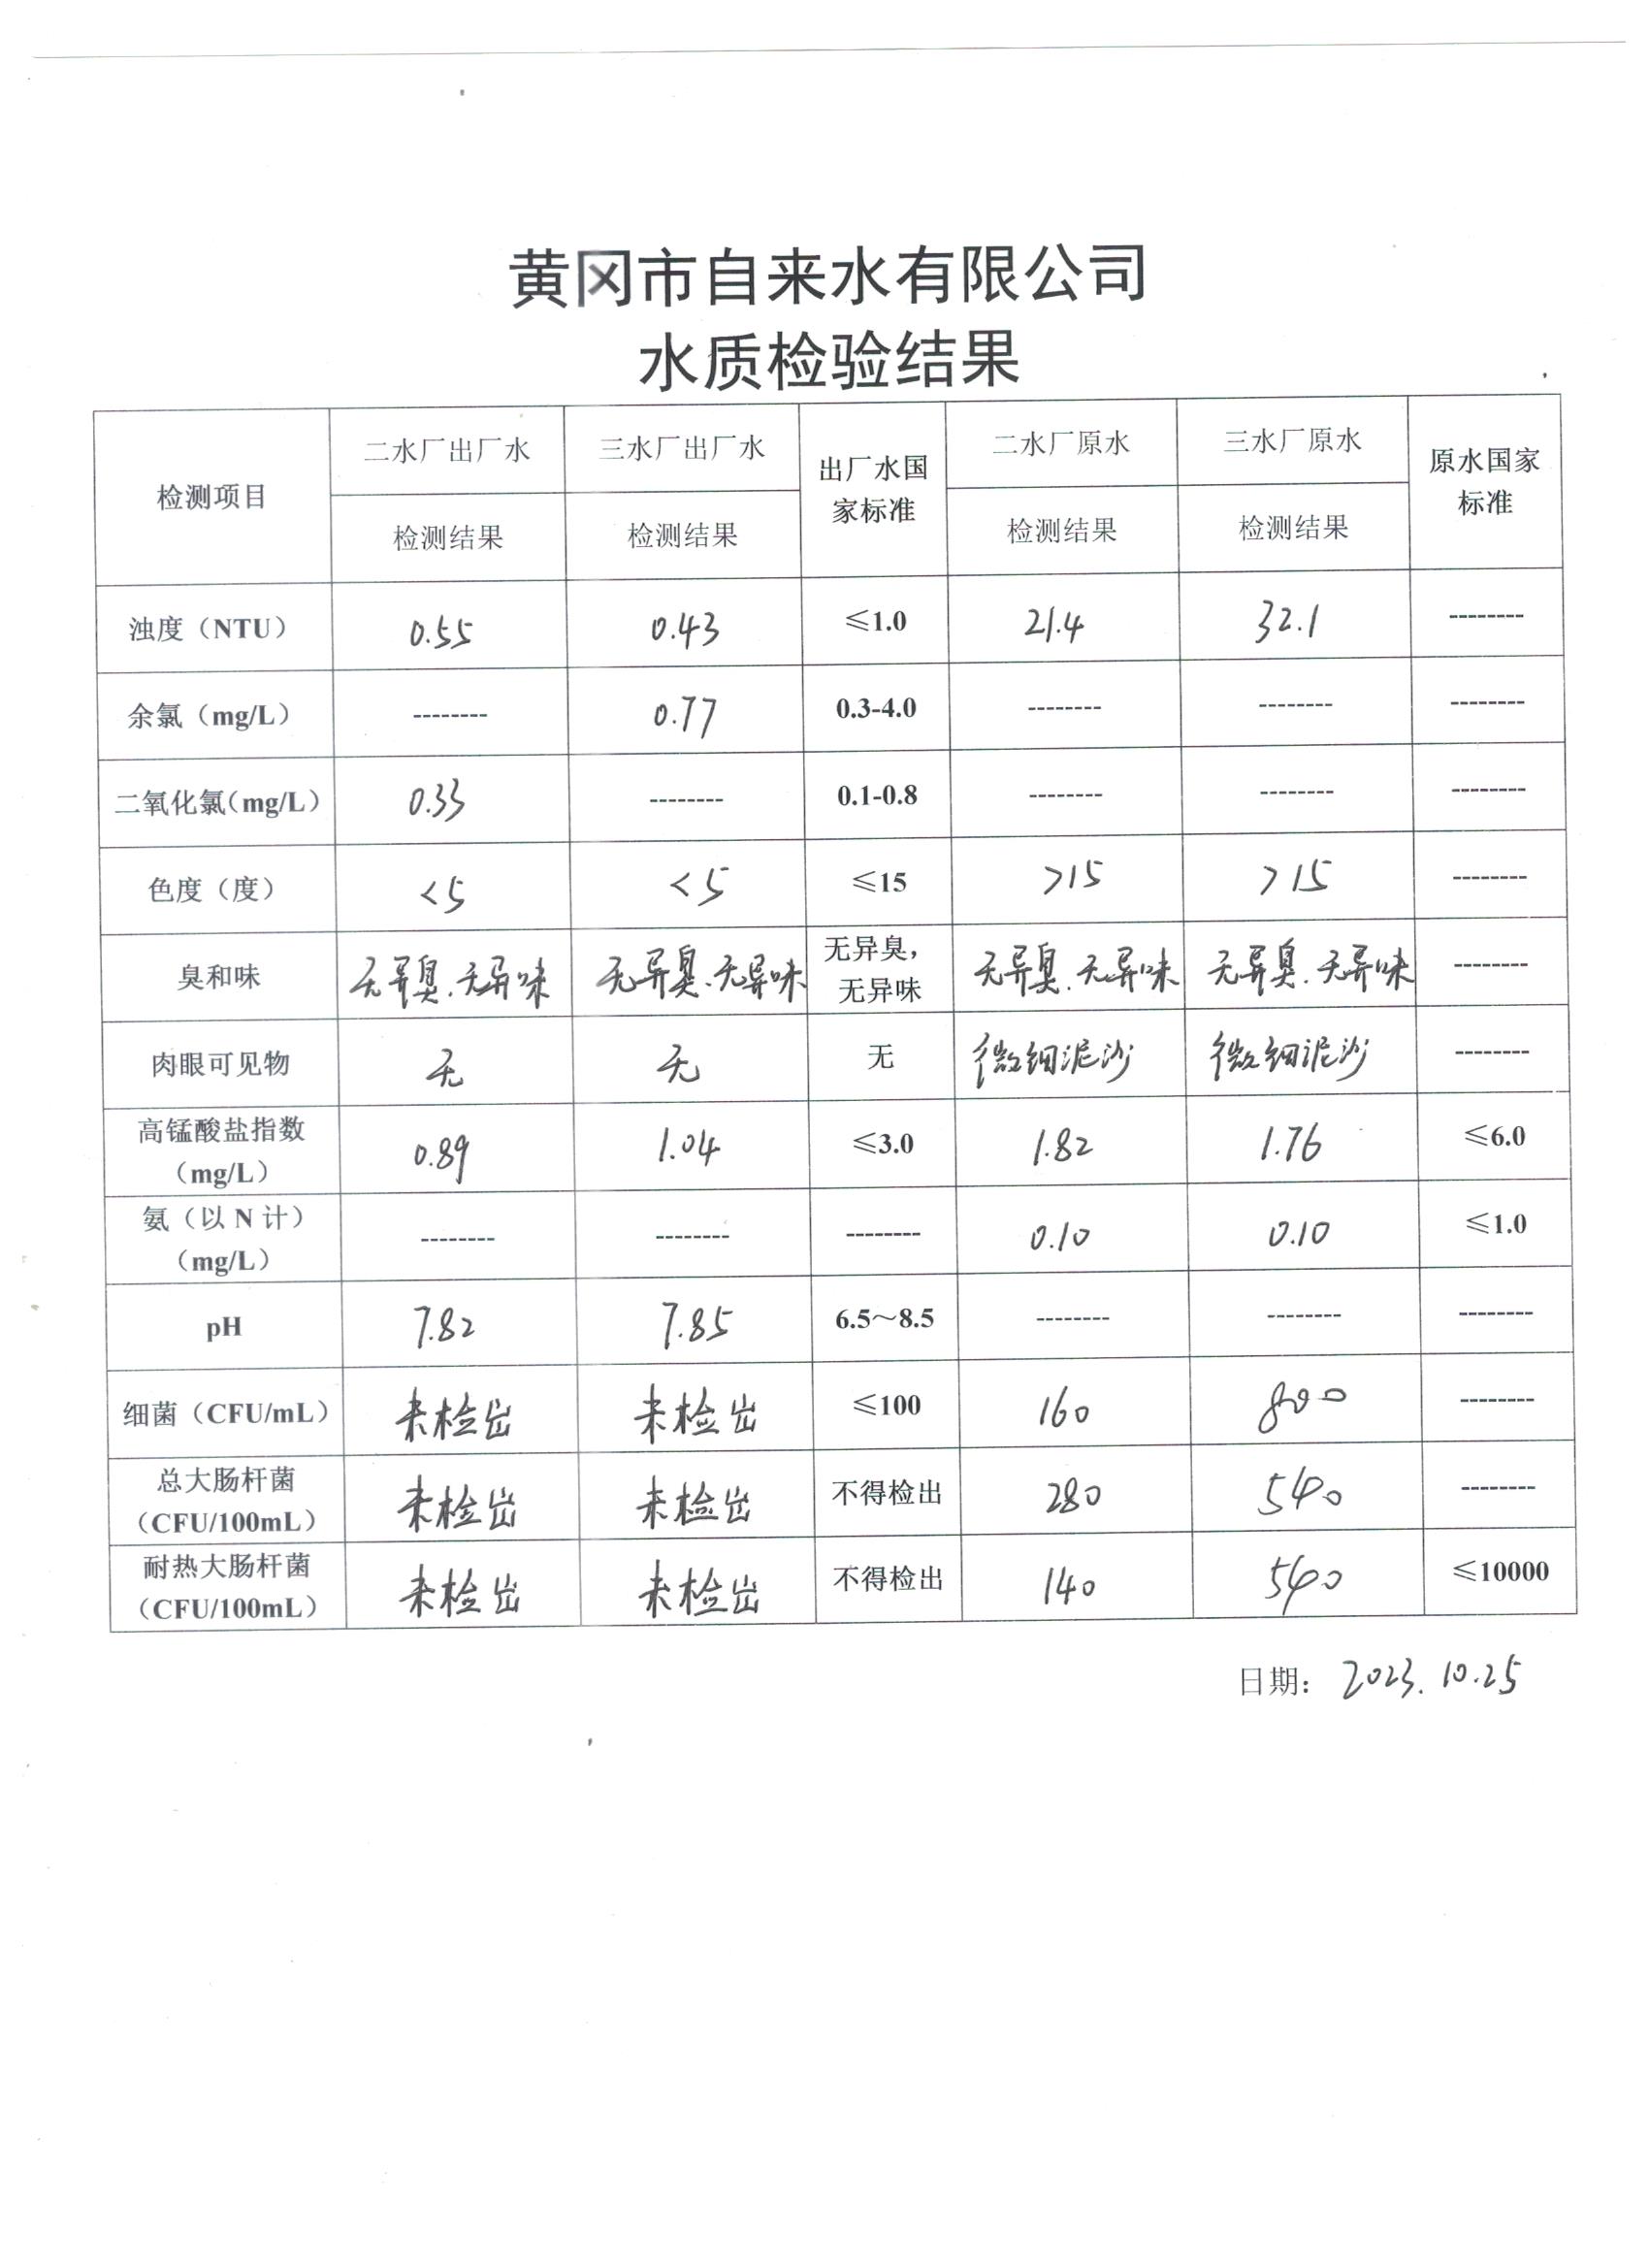 黄冈市自来水有限公司
水质检验结果
检测项目 二水厂出厂水 三水厂出厂水 出厂水国家标准 二水厂原水 三水厂原水 原水国家标准
检测结果 检测结果 检测结果 检测结果
浊度（NTU） 0.55 0.43 ≤1.0 21.4 32.1 --------
余氯（mg/L） -------- 0.77 0.3-4.0 -------- -------- --------
二氧化氯（mg/L） 0.33 -------- 0.1-0.8 -------- -------- --------
色度（度） <5 <5 ≤15 >15 >15 --------
臭和味 无异臭.无异味 无异臭.无异味 无异臭，无异味 无异臭.无异味 无异臭.无异味 --------
肉眼可见物 无 无 无 微细泥沙 微细泥沙 --------
高锰酸盐指数（mg/L） 0.89 1.04 ≤3.0 1.82 1.76 ≤6.0
氨（以 N 计）（mg/L） -------- -------- -------- 0.10 0.10 ≤1.0
pH 7.82 7.85 6.5～8.5 -------- -------- --------
细菌（CFU/mL） 未检出 未检出 ≤100 160 800 --------
总大肠杆菌（CFU/100mL） 未检出 未检出 不得检出 280 540 --------
耐热大肠杆菌（CFU/100mL） 未检出 未检出 不得检出 140 540 ≤10000
日期： 2023.10.25